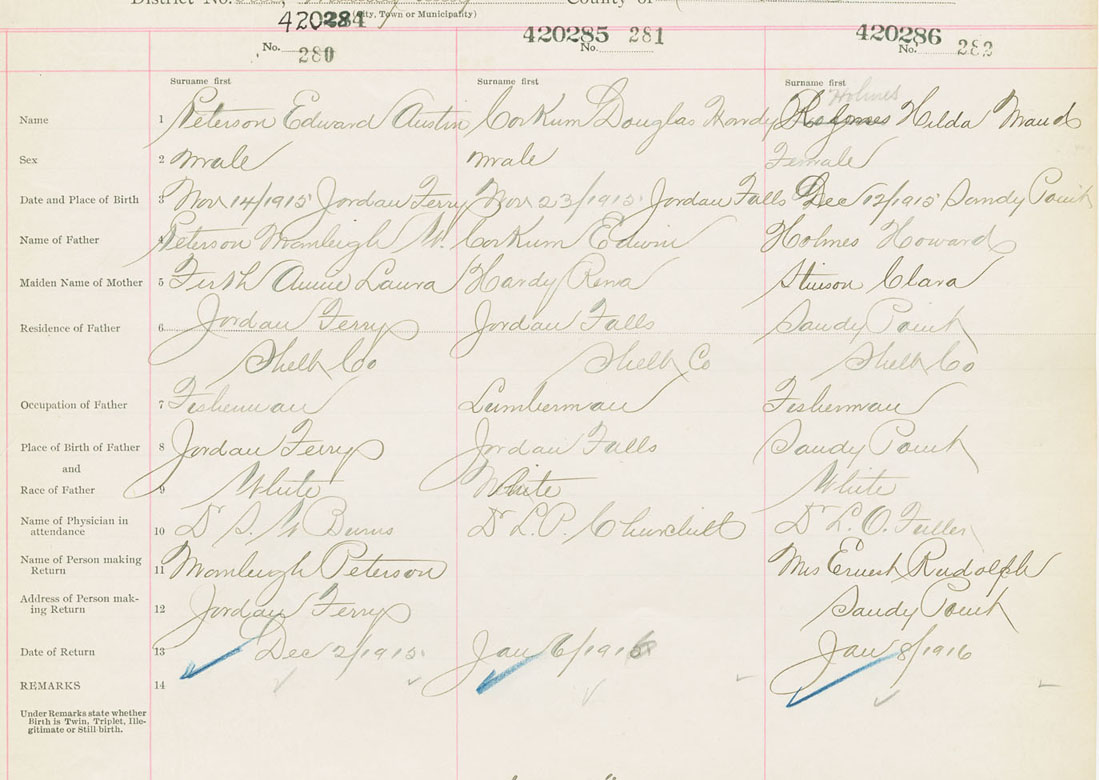 District No. County of
(City, Town or Municipality)
420284 420285 281 420286
No. 280 No. No. 282
Surname first Surname first Surname first
Holmes
Name 1 Peterson Edward Austin Corkum Douglas Hardy Holmes Hilda Maud
Sex 2 Male Male Female
Date and Place of Birth 3 Nov 14/1915 Jordan Ferry Nov 23/1915 Jordan Falls Dec 12/1915 Sandy Point
Name of Father 4 Peterson Manleigh W. Corkum Edwin Holmes Howard
Maiden Name of Mother 5 Firth Annie Laura Hardy Rena Stinson Clara
Residence of Father 6 Jordan Ferry Jordan Falls Sandy Point
Shelb Co Shelb Co Shelb Co
Occupation of Father 7 Fisherman Lumberman Fisherman
Place of Birth of Father 8 Jordan Ferry Jordan Falls Sandy Point
and
Race of Father 9 White White White
Name of Physician in
attendance 10 Dr S. W Burns Dr L.P. Churchill Dr L. O. Fuller
Name of Person making
Return 11 Manleigh Peterson Mrs Ernest Rudolph
Address of Person mak-
ing Return 12 Jordan Ferry Sandy Point
Date of Return 13 Dec 2/1915 Jan 6/1916 Jan 8/1916
REMARKS 14
Under Remarks state whether
Birth is Twin, Triplet, Ille-
gitimate or Still birth.